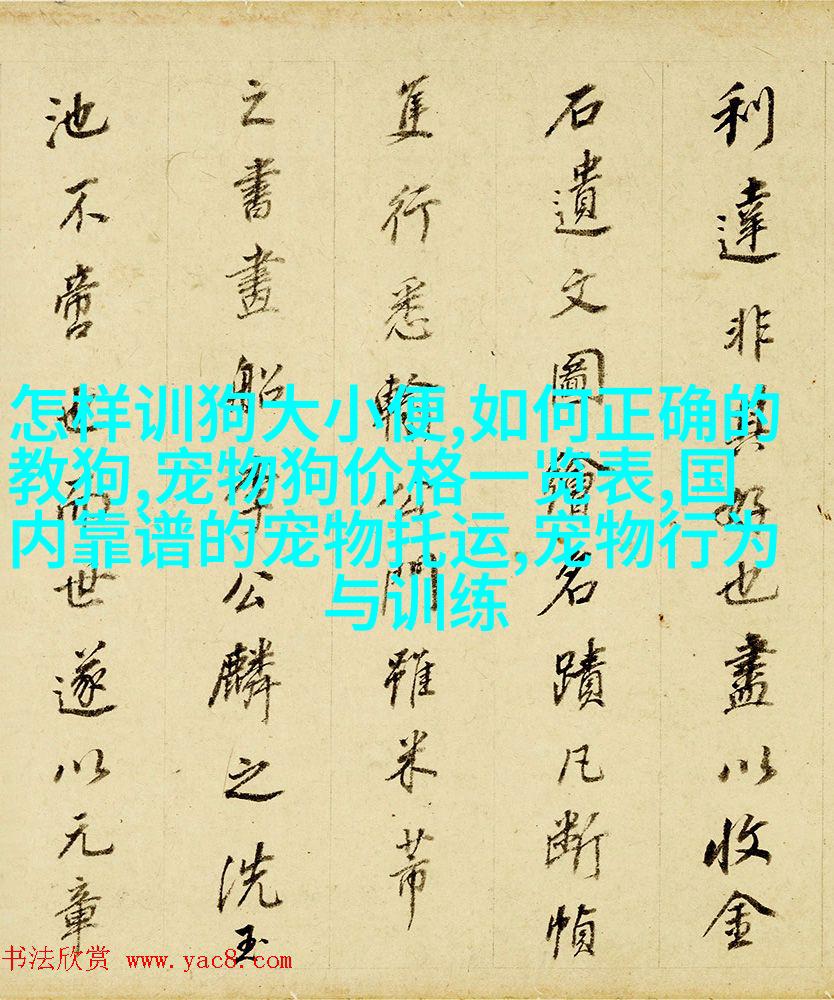 利達非其好也盡以收金
石遺文圖繪名蹟凡斷幀
隻行悉輸公門雖米芾
之書畫船李公麟之洗玉
池不啻也而世遂以元章
怎样训狗大小便,如何正确的
教狗,宠物狗价格一览表,国
内靠谱的宠物托运,宠物行为
与训练
书法欣赏 www.yac8.com